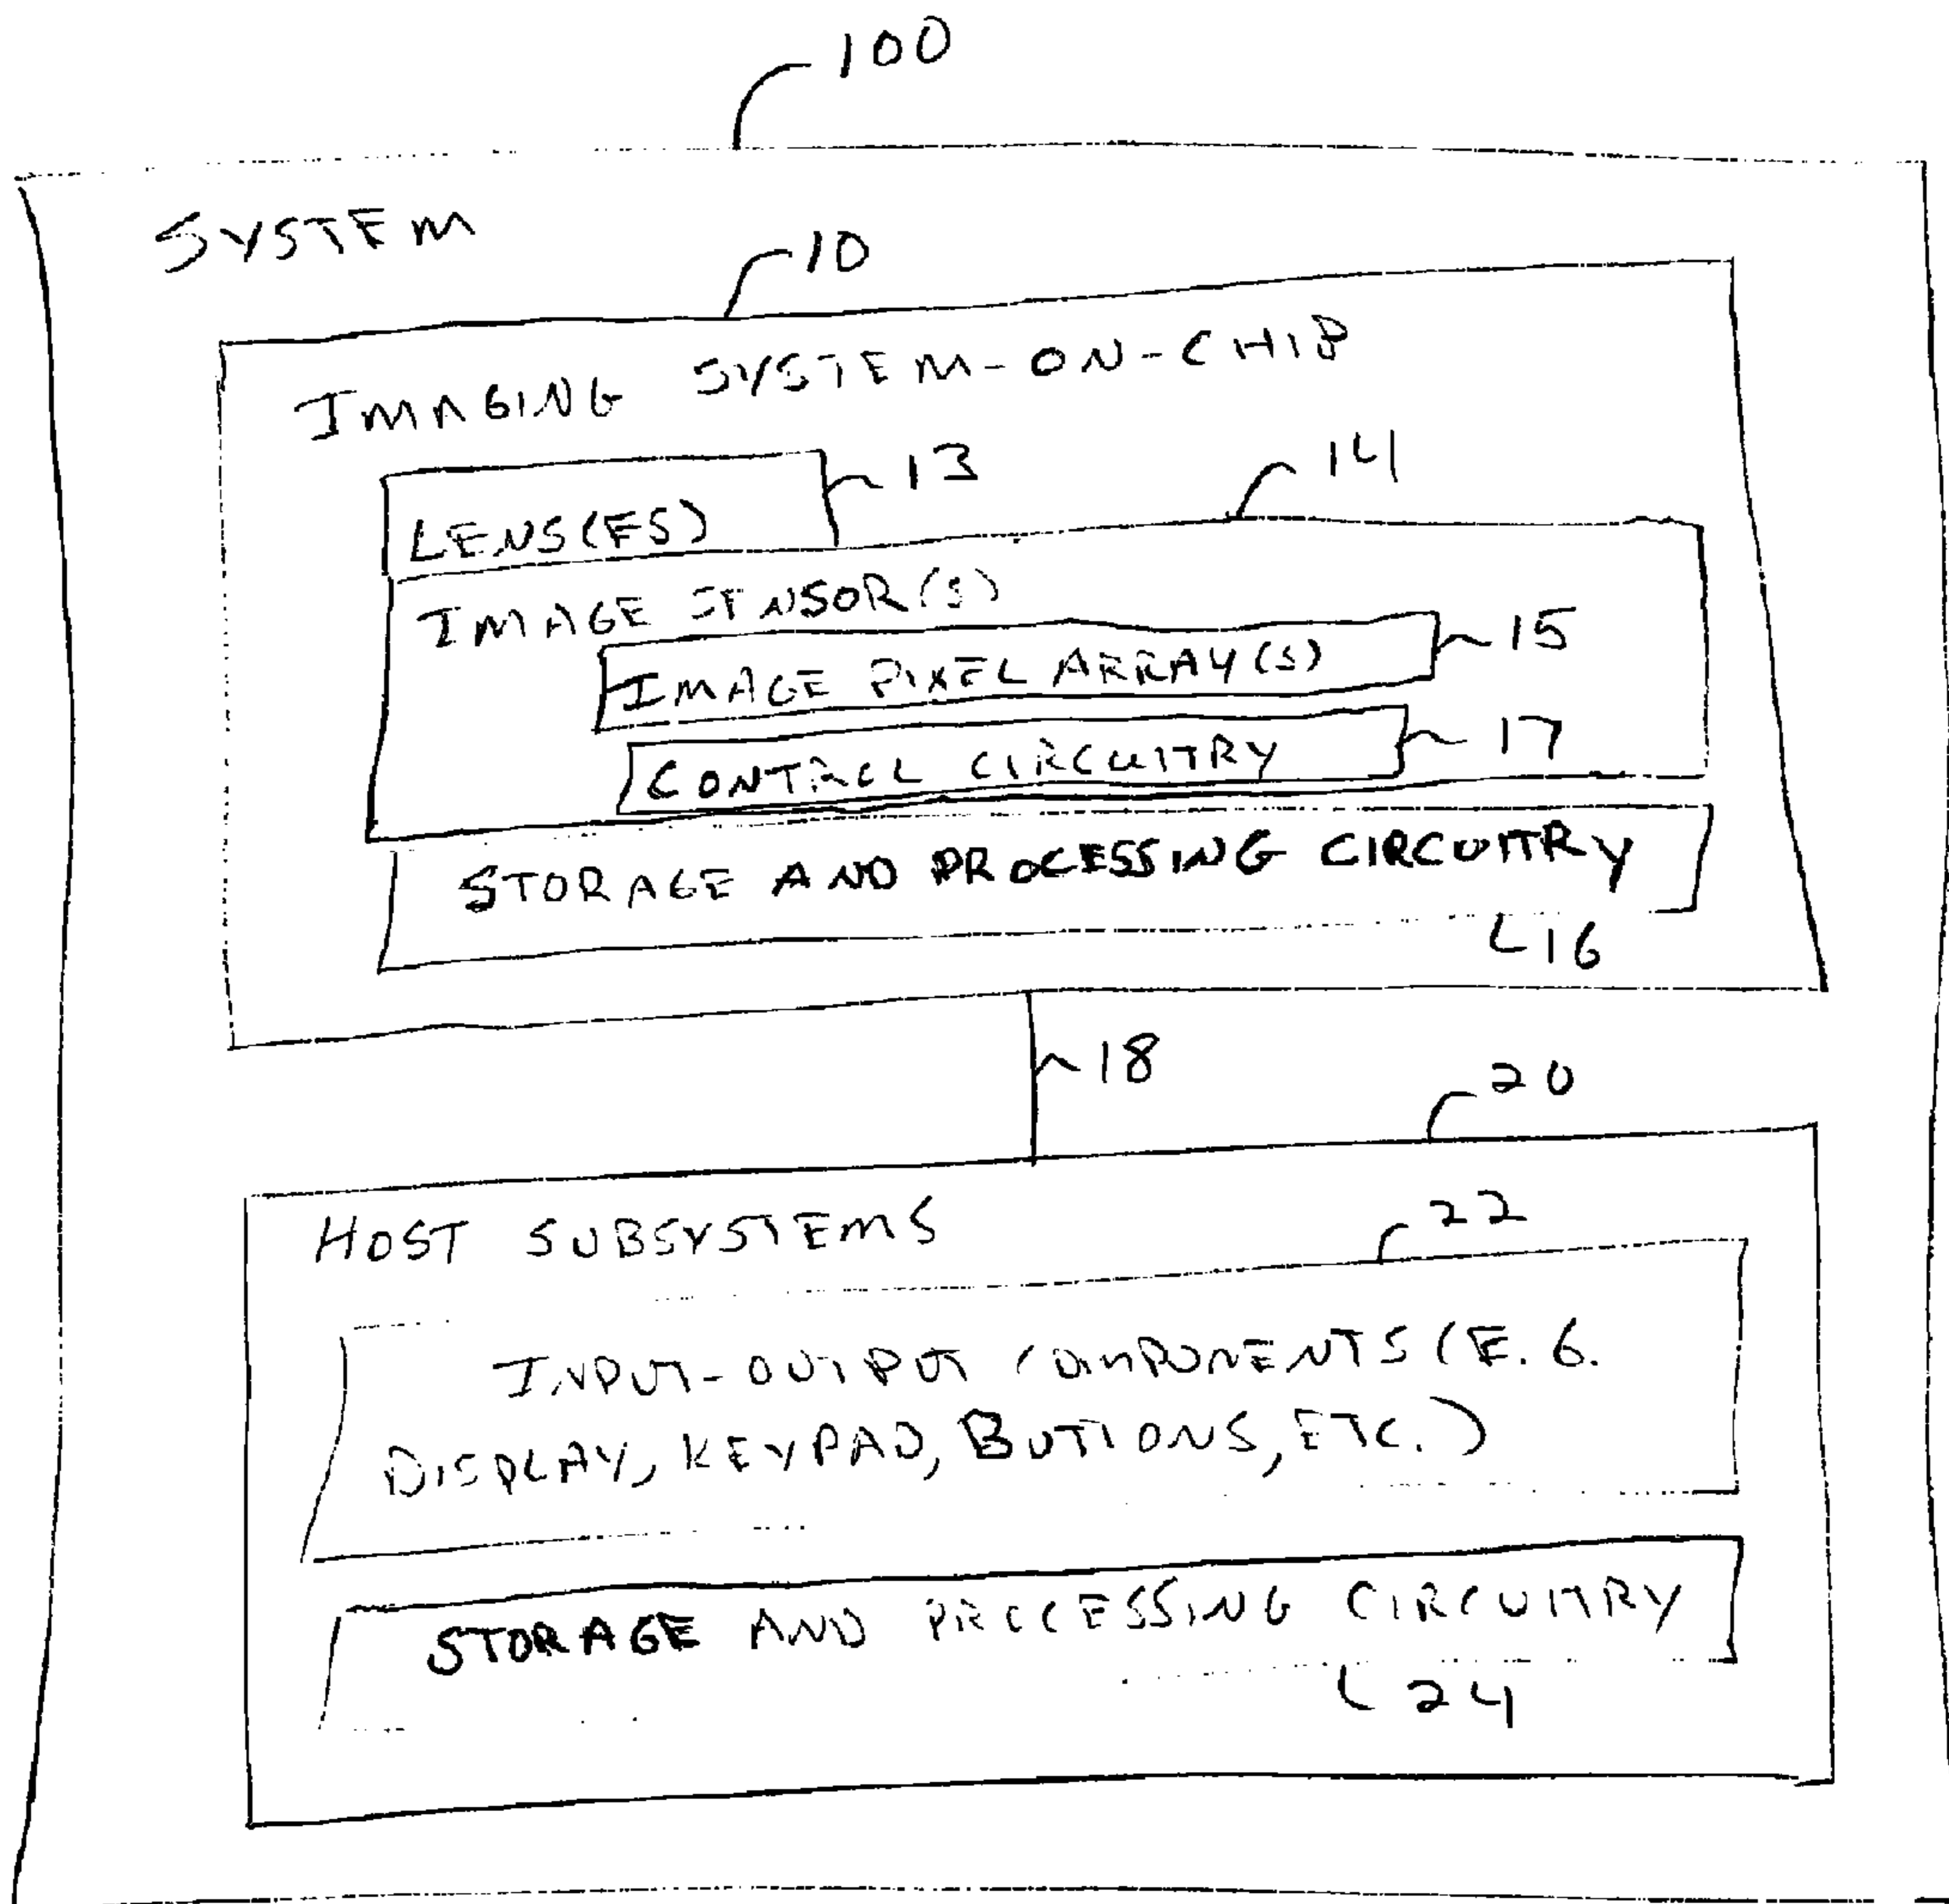 100
SYSTEM
10
IMAGING SYSTEM-ON-CHIP
13
14
LENS(ES)
IMAGE SENSOR(S)
15
IMAGE PIXEL ARRAY(S)
17
CONTROL CIRCUITRY
STORAGE AND PROCESSING CIRCUITRY
16
18
20
HOST SUBSYSTEMS
22
INPUT-OUTPUT COMPONENTS (E.G.
DISPLAY, KEYPAD, BUTTONS, ETC.)
STORAGE AND PROCESSING CIRCUITRY
24